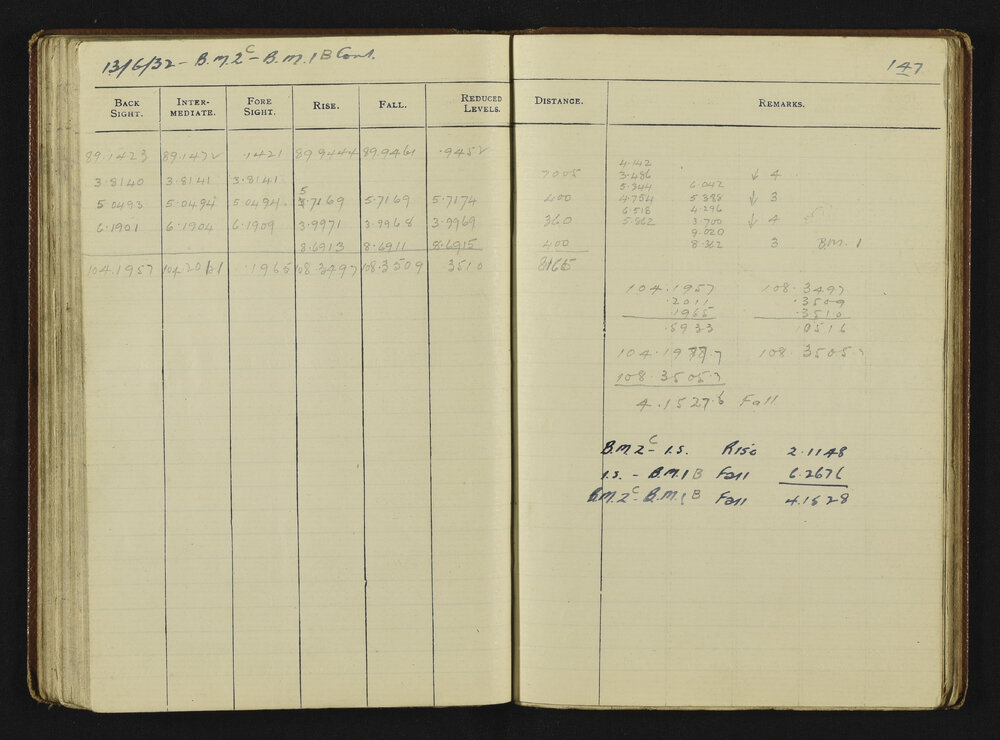 13/6/32 - B.M.2C - B.M.1B Cont.
147
BACK SIGHT. INTER-MEDIATE. FORE SIGHT. RISE. FALL. REDUCED LEVELS. DISTANCE. REMARKS.
89.1423 89.1472 .1421 89.9444 89.9461 .9452
4.142
7005 3.486 ↓ 4
3.8140 3.8141 3.8141
5.344 6.042
5.0493 5.0494 5.0494 5.7169 5.7169 5.7174 400 4.754 5.388 ↓ 3
6.518 4.296
6.1901 6.1904 6.1909 3.9971 3.9968 3.9969 360 5.862 3.700 ↓ 4
9.020
8.6913 8.6911 8.6915 400 8.362 3 BM. 1
104.1957 104.2011 .1965 108.3497 108.3509 3510 8165
104.1957 108.3497
.2011 .3509
.1965 .3510
.5933 10516
104.1977.7 108.3505.3
108.3505.3
4.1527.6 Fall
B.M.2C - I.S. Rise 2.1148
I.S. - B.M.1B Fall 6.2676
B.M.2C - B.M.1B Fall 4.1528